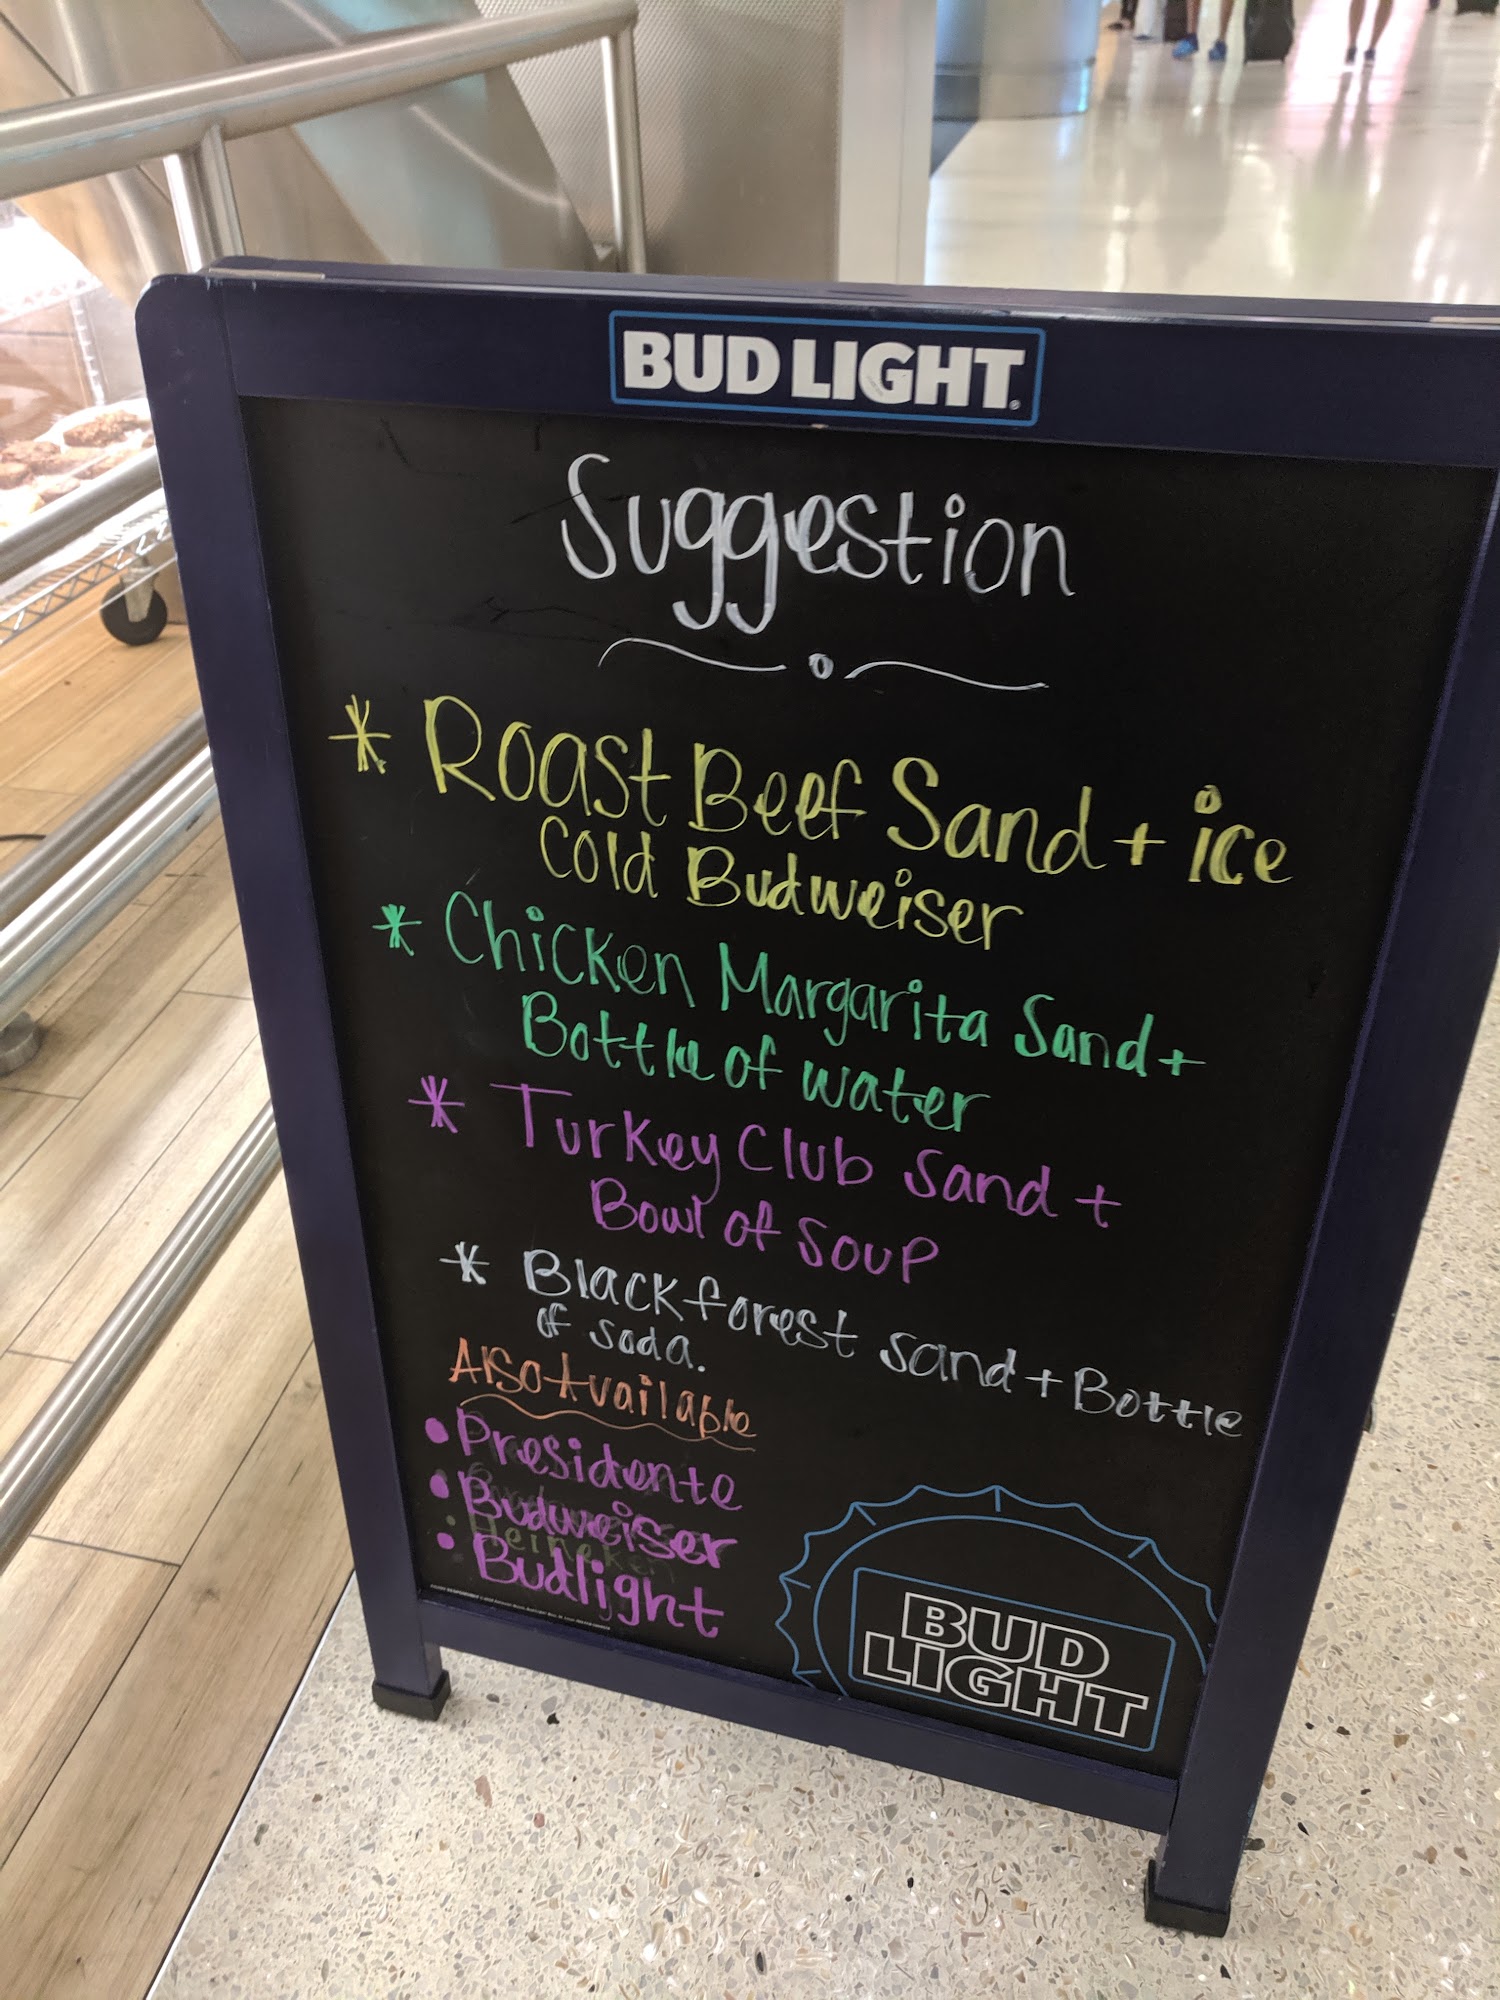 BUD LIGHT
Suggestion
* Roast Beef Sand + ice
Cold Budweiser
* Chicken Margarita Sand +
Bottle of water
* Turkey Club Sand +
Bowl of Soup
* Black forest Sand + Bottle
of Soda.
Also Available
• Presidente
• Budweiser
Heineken
• Budlight
BUD
LIGHT